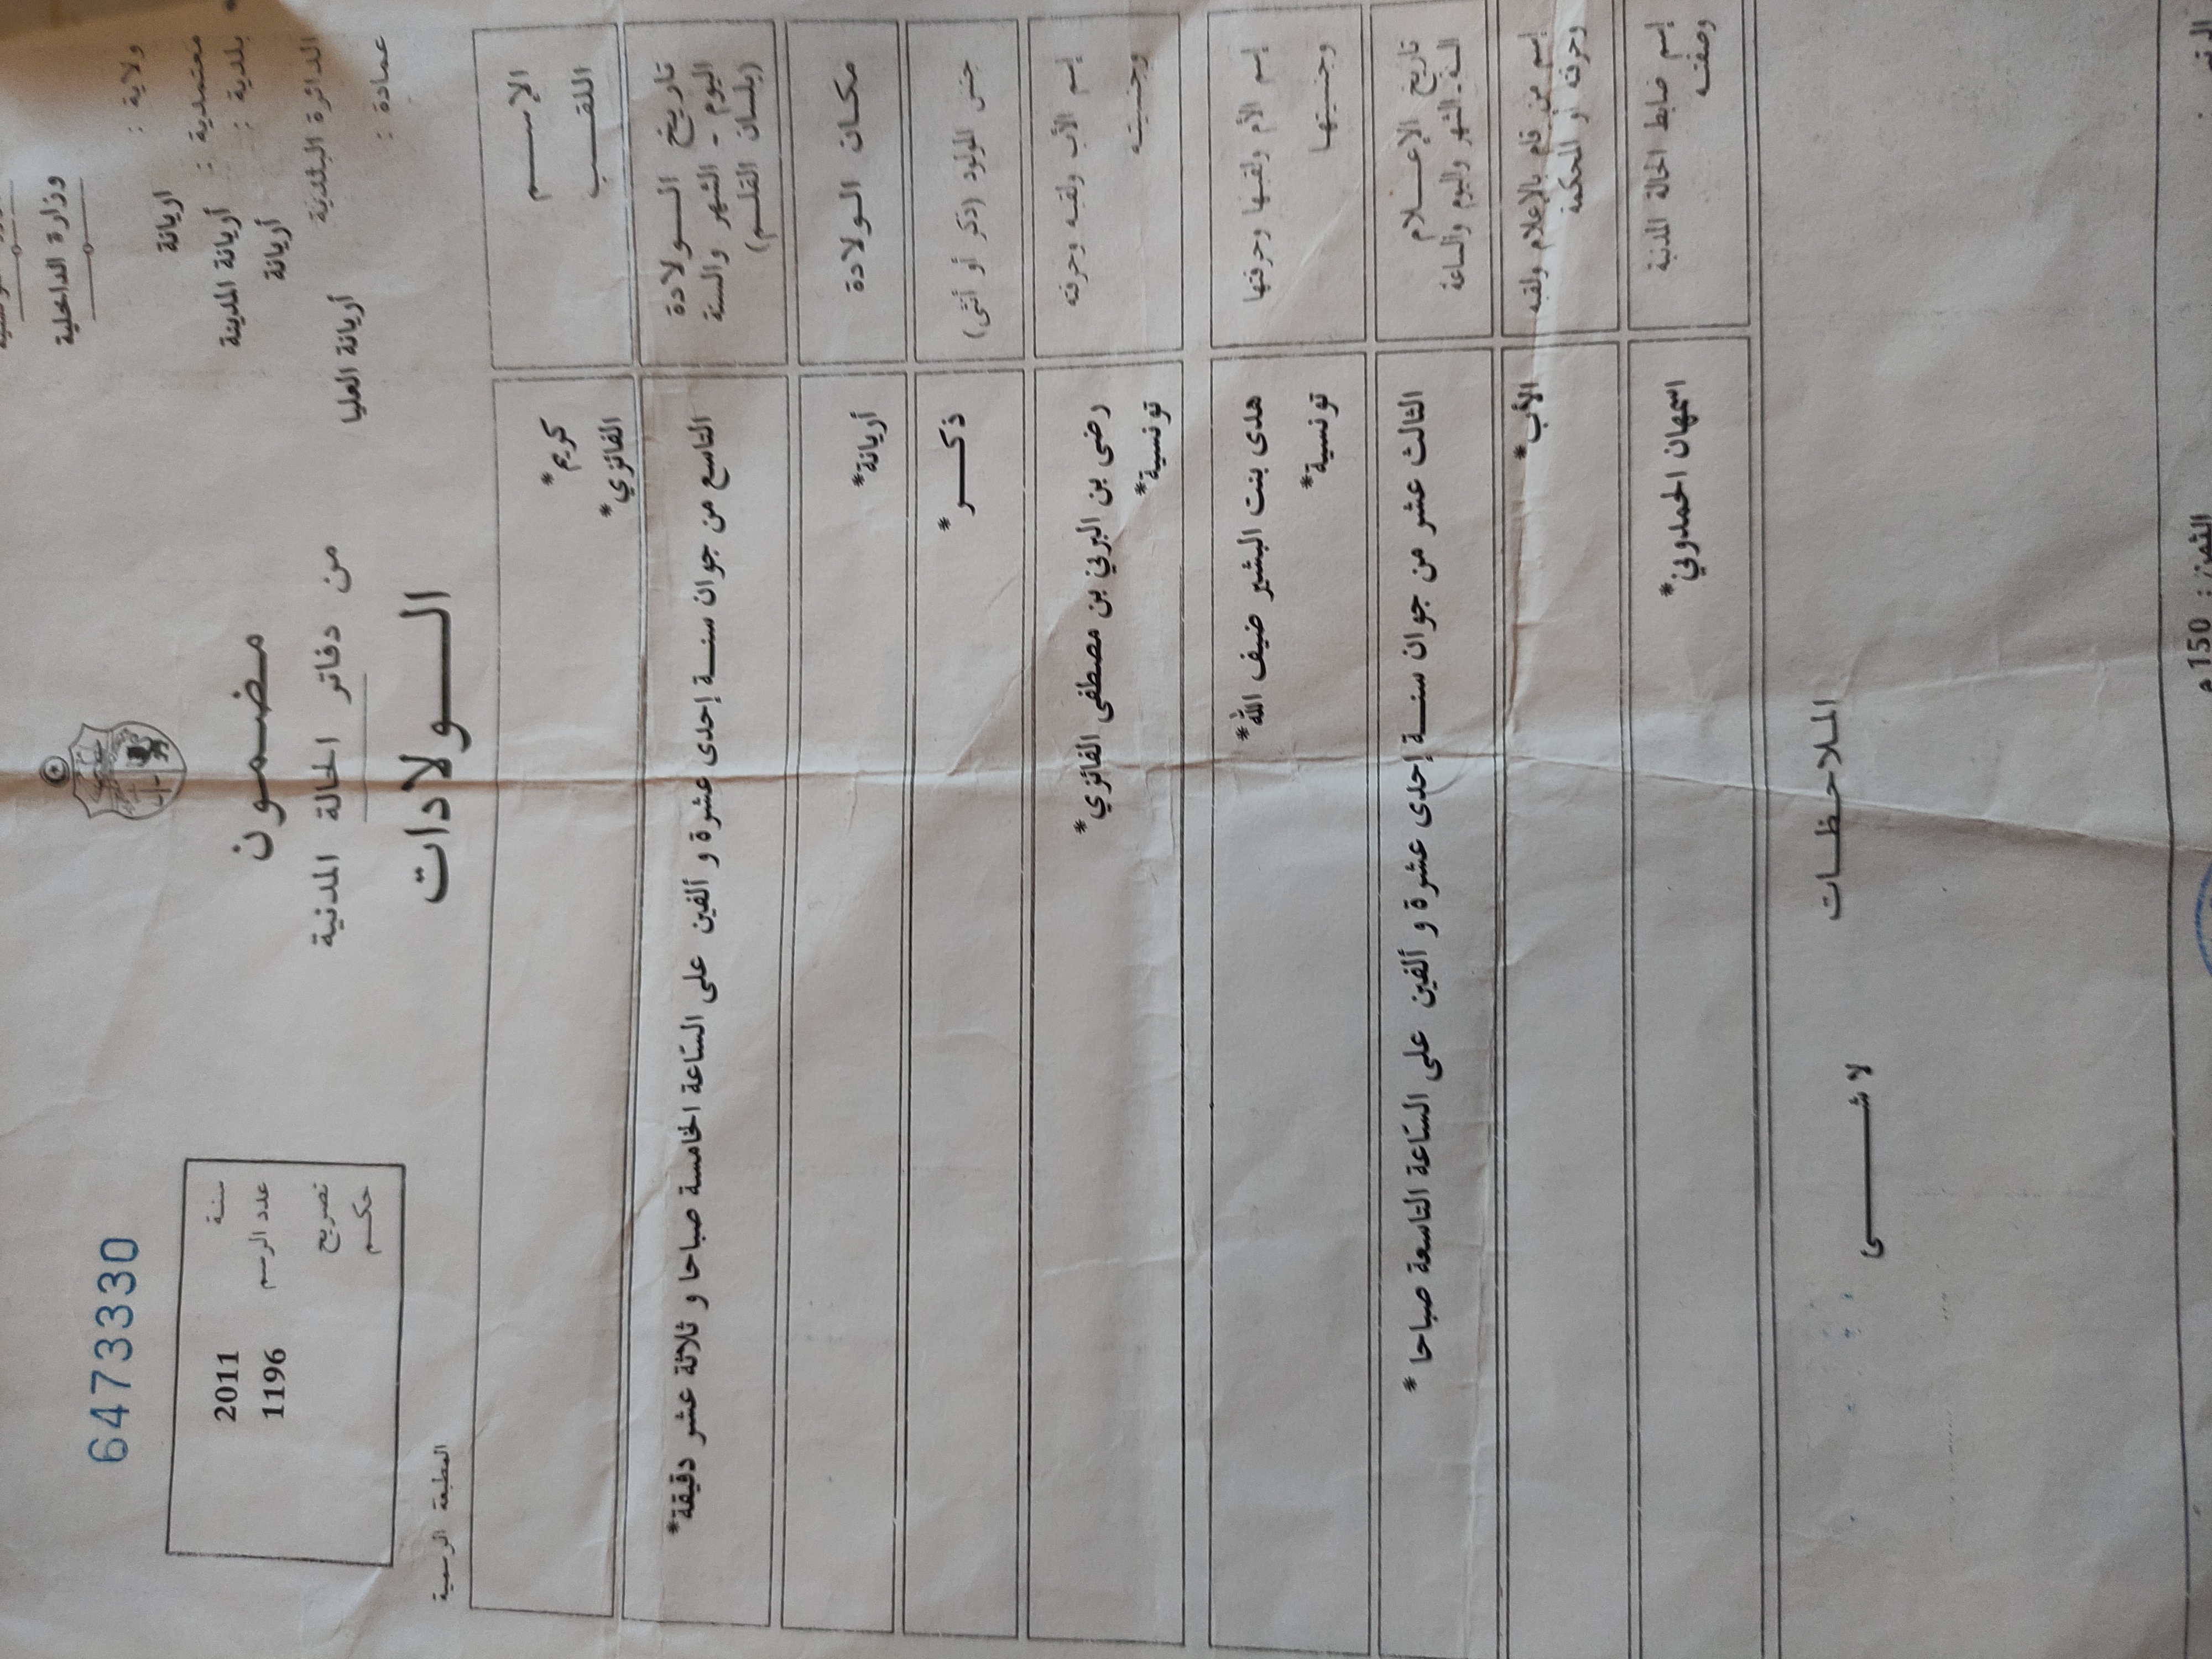 وزارة الداخلية
ولاية : اريانة
معتمدية : أريانة المدينة
بلدية : أريانة
الدائرة البلدية
أريانة العليا
عمادة :
مضمون
من دفاتر الحالة المدنية
الـــولادات
6473330
سنة 2011
عدد الرسم 1196
تصريح
حكـم
المطبعة الرسمية
الإســـم كريم*
اللقـــب الفائزي*
تاريخ الـــولادة
اليوم - الشهر والسنة
(بلسان القلـم)
التاسع من جوان سنـــة إحدى عشرة و ألفين على السّاعة الخامسة صباحا و ثلاثة عشر دقيقة*
مكـان الـولادة أريانة*
جنس المولود (ذكر أو أنثى) ذكـــر*
إسم الأب ولقبـه وحرفته
وجنسيتـه
رضى بن البرني بن مصطفى الفائزي*
تونسية*
إسم الأم ولقبـها وحرفتها
وجنسيتهـا
هدى بنت البشير ضيف الله*
تونسية*
تاريخ الإعـــلام
السنة.الشهر واليوم والساعة
الثالث عشر من جوان سنـــة إحدى عشرة و ألفين على السّاعة التاسعة صباحا *
إسم من قام بالإعلام ولقبه
وحرفته أو المحكمة
الأب*
إسم ضابط الحالة المدنية
وصفتـه
اسمهان الحمدوني*
الملاحـظـات
لا شـــــى
الثمن: 150 م